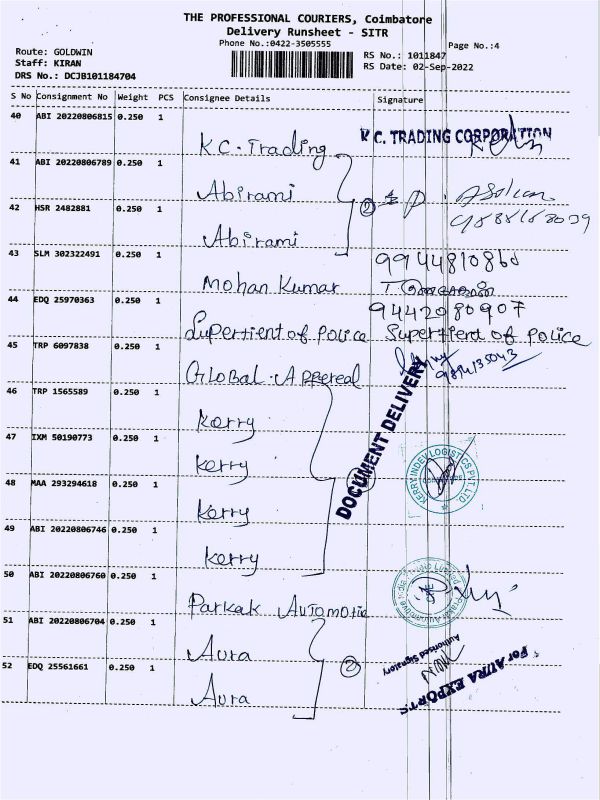 THE PROFESSIONAL COURIERS, Coimbatore
Delivery Runsheet - SITR
Phone No.:0422-3505555
Page No.:4
Route: GOLDWIN
Staff: KIRAN
DRS No.: DCJB101184704
RS No.: 1011847
RS Date: 02-Sep-2022
S No Consignment No Weight PCS Consignee Details Signature
40 ABI 20220806815 0.250 1
K.C. Trading K C. TRADING CORPORATION
41 ABI 20220806789 0.250 1
Abirami
42 HSR 2482881 0.250 1
Abirami 2
43 SLM 302322491 0.250 1 9944810860
Mohan Kumar
44 EDQ 25970363 0.250 1 9442080907
Supertient of Police Supertient of police
45 TRP 6097838 0.250 1
Global. Appereal
46 TRP 1565589 0.250 1
Kerry
DOCUMENT DELIVERY
47 IXM 50190773 0.250 1
Kerry
KERRY INDEV LOGISTICS PVT. LTD.
48 MAA 293294618 0.250 1
Kerry
49 ABI 20220806746 0.250 1
Kerry
50 ABI 20220806760 0.250 1
Parkak Automotie
51 ABI 20220806704 0.250 1
Aura
Authorised Signatory
For AURA EXPORTS
52 EDQ 25561661 0.250 1 2
Aura